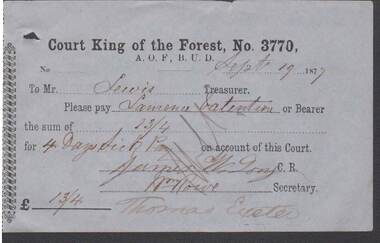 Court King of the Forest, No. 3770,
A. O. F., B. U. D.
No Sept 19 1877
To Mr. Lewis Treasurer.
Please pay or Bearer
the sum of 13/4
for 4 Days Sick Pay on account of this Court.
James C. R.
Wm Howe Secretary.
£ 13/4 Thomas Exeter